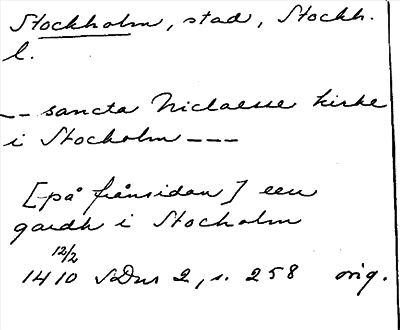 Stockholm, stad, Stockh.
l.
-- sancta Niclaesse kirke
i Stocholm ---
[på frånsidan] een
gardh i Stocholm
12/2
1410 SDns 2, s. 258 orig.